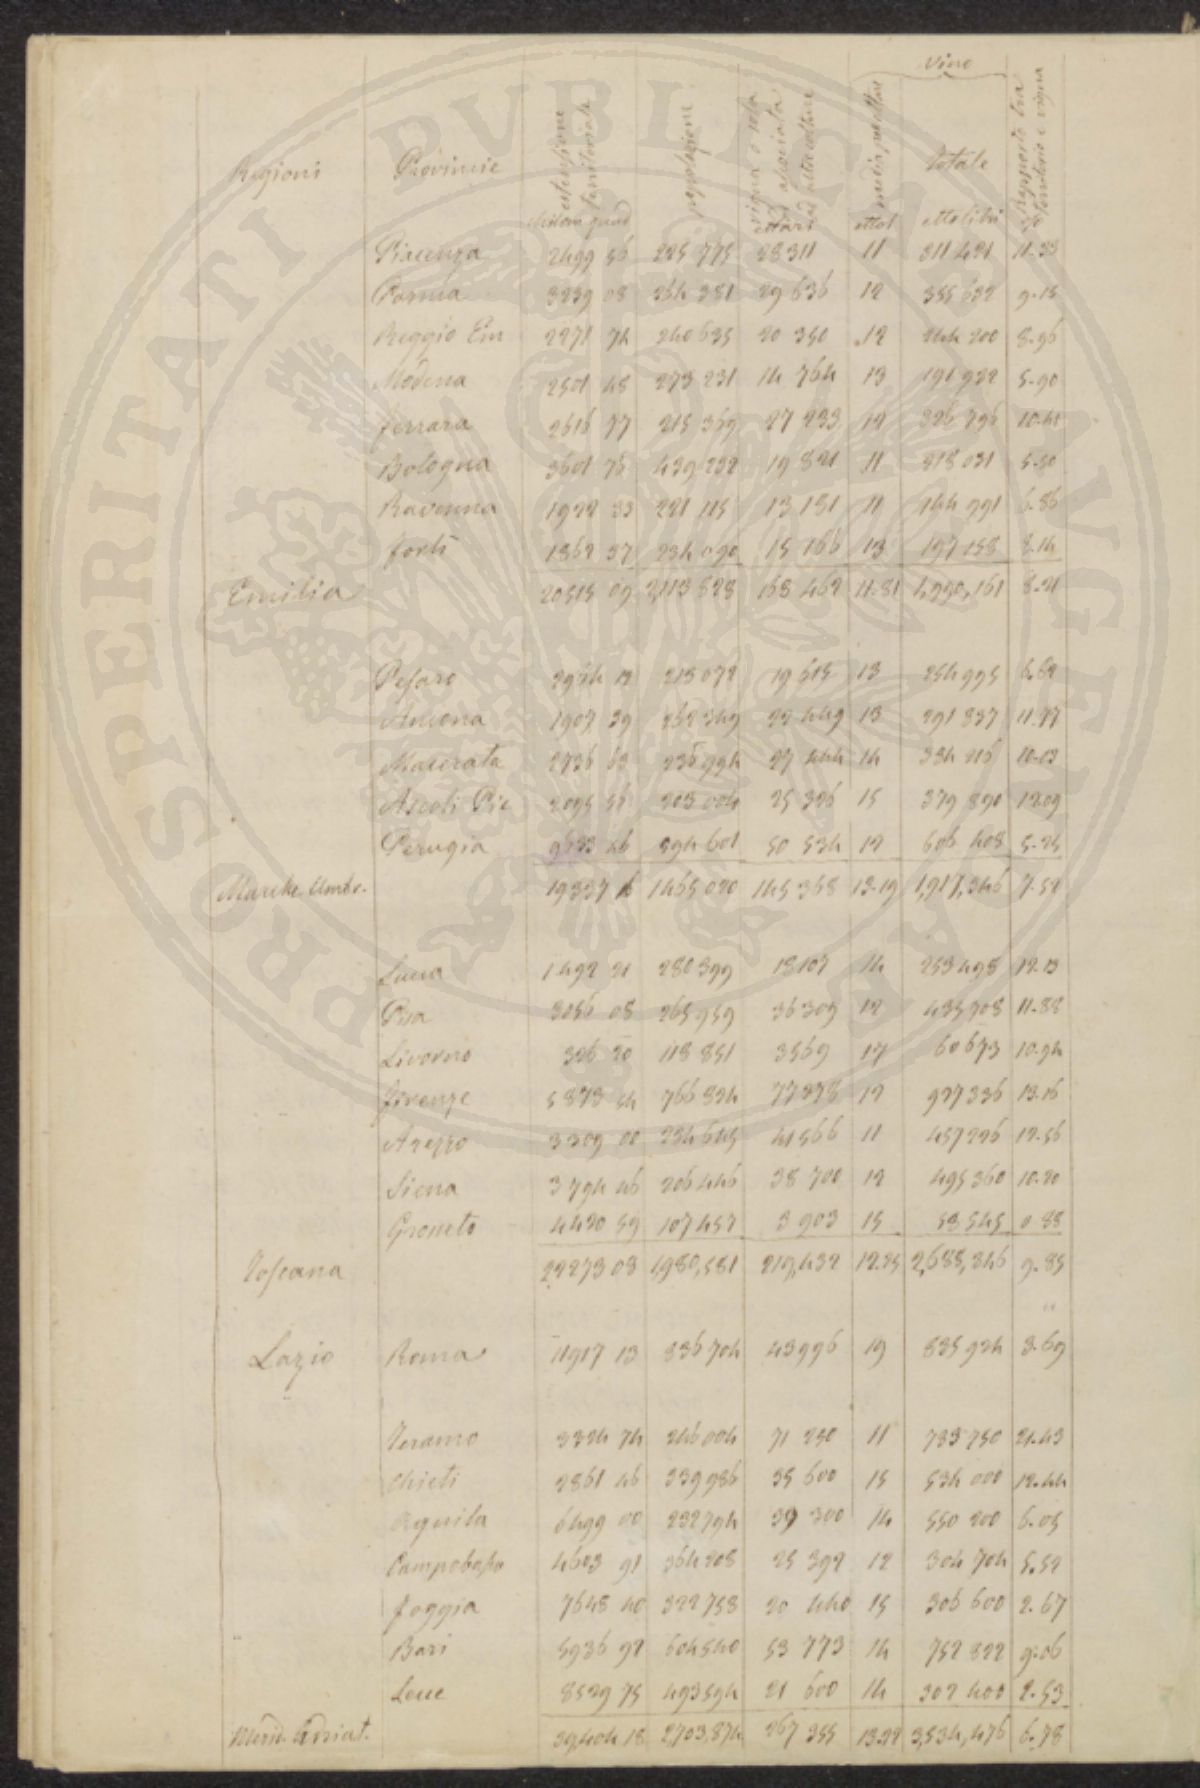 PROSPERITATI PUBLICAE AUGENDAE
Vino
Regioni Provincie estensione territoriale popolazione vigna o sola od associata ad altre colture media per ettaro totale Rapporto tra territorio e vigna
chilom quad ettari ettol ettolitri %
Piacenza 2499 56 225 775 28311 11 311 421 11.33
Parma 3239 08 264 381 29 636 12 355 632 9.15
Reggio Em 2271 74 240 635 20 350 12 244 200 8.96
Modena 2501 48 273 231 14 764 13 191 932 5.90
Ferrara 2616 77 215 369 27 233 12 326 796 10.41
Bologna 3601 76 439 232 19 821 11 218 031 5.50
Ravenna 1922 33 221 115 13 181 11 144 991 6.86
Forlì 1862 37 234 090 15 166 13 197 158 8.14
Emilia 20515 09 2,113 828 168 462 11.81 1,990,161 8.21
Pesaro 2964 12 213 072 19 615 13 254 995 6.62
Ancona 1907 39 262 349 22 449 13 291 837 11.77
Macerata 2736 63 236 994 27 444 14 384 216 10.03
Ascoli Pic 2095 56 203 004 25 326 15 379 890 12.09
Perugia 9633 46 594 601 50 534 12 606 408 5.25
Marche Umbr. 19337 16 1465 020 145 368 13.19 1,917,346 7.52
Lucca 1492 21 280 399 18107 14 253 498 12.13
Pisa 3056 08 265 959 36309 12 435 708 11.88
Livorno 326 20 118 851 3569 17 60 673 10.94
Firenze 5873 54 766 824 77278 12 927 336 13.16
Arezzo 3309 00 234 645 41566 11 457 226 12.56
Siena 3794 46 206 446 38 700 12 495 360 10.20
Grosseto 4420 59 107 457 3 903 15 58 545 0.88
Toscana 22273 08 1,980,581 219,432 12.25 2,688,346 9.85
Lazio Roma 11917 13 836 704 43996 19 835 924 3.69
Teramo 3324 74 246 004 71 250 11 783 750 21.43
Chieti 2861 46 339 986 35 600 15 534 000 12.44
Aquila 6499 00 332 794 39 300 14 550 200 6.05
Campobasso 4603 91 364 208 25 392 12 304 704 5.52
Foggia 7648 40 322 758 20 440 15 306 600 2.67
Bari 5936 92 604 540 53 773 14 752 822 9.06
Lecce 8529 75 493 594 21 600 14 302 400 2.53
Merid. Adriat. 39,404 18 2,703,874 267 355 13.22 3,534,476 6.78